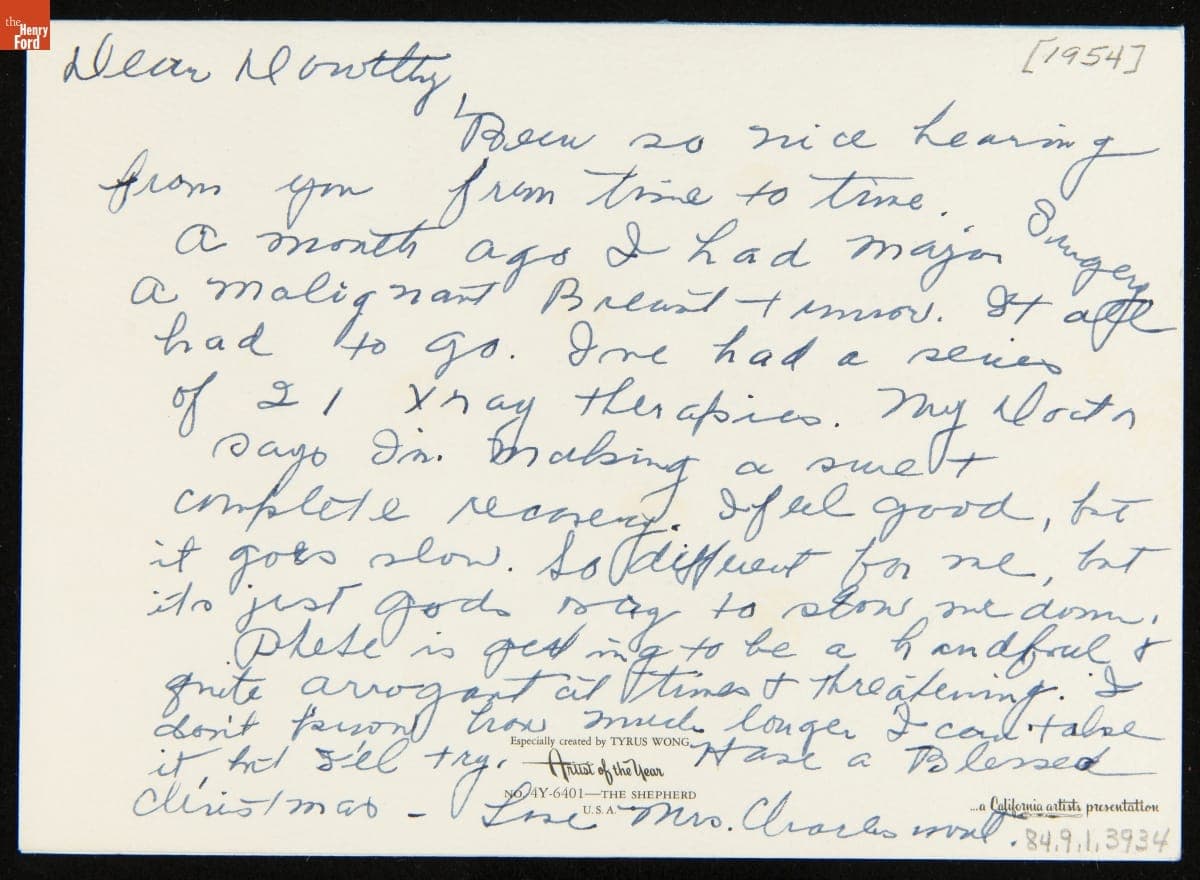 the
Henry
Ford
[1954]
Dear Dorothy,
Been so nice hearing
from you from time to time.
A month ago I had major Surgery
a malignant Breast tumor. It all
had to go. I've had a series
of 21 Xray therapies. My Doctor
says I'm making a sure +
complete recovery. I feel good, but
it goes slow. So different for me, but
it's just Gods way to slow me down.
is getting to be a handfull &
quite arrogant at times & threatening. I
don't know how much longer I can take
it, but I'll try. Have a Blessed
Christmas - Love Mrs. Charles
Especially created by TYRUS WONG
Artist of the Year
NO. 4Y-6401—THE SHEPHERD
U.S.A.
...a California artists presentation
84.9.1.3934